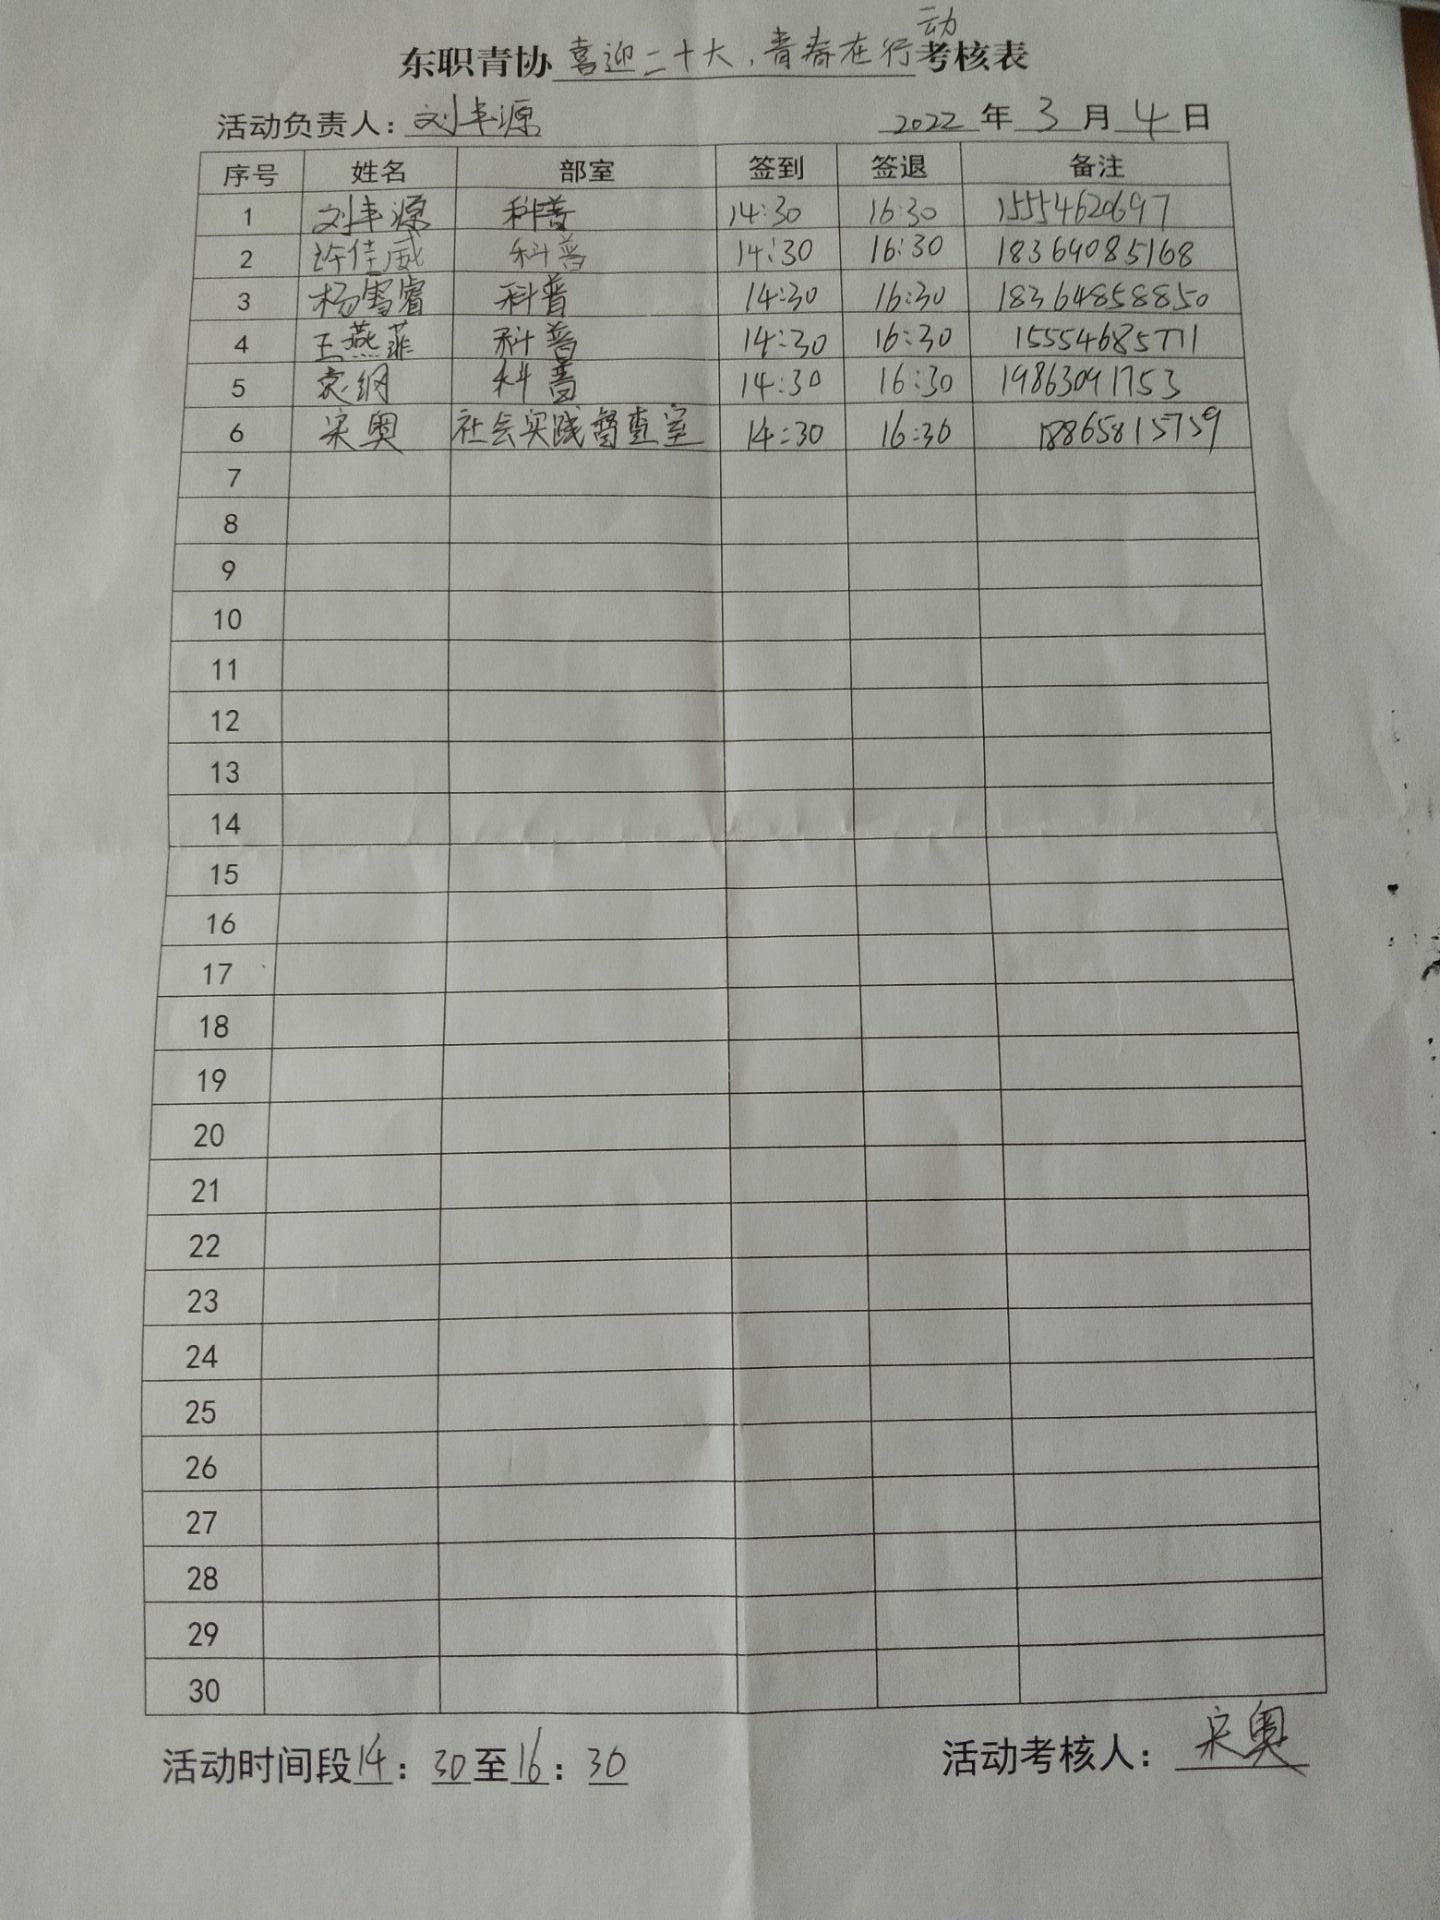 东职青协 喜迎二十大，青春在行动 考核表
活动负责人：刘丰源 2022 年 3 月 4 日
序号 姓名 部室 签到 签退 备注
1 刘丰源 科普 14:30 16:30 15554620697
2 许佳威 科普 14:30 16:30 18364085168
3 杨雪睿 科普 14:30 16:30 18364858850
4 王燕菲 科普 14:30 16:30 15554685711
5 袁纲 科普 14:30 16:30 19863091753
6 宋奥 社会实践督查室 14:30 16:30 18865815759
7
8
9
10
11
12
13
14
15
16
17
18
19
20
21
22
23
24
25
26
27
28
29
30
活动时间段14：30至16：30 活动考核人：宋奥